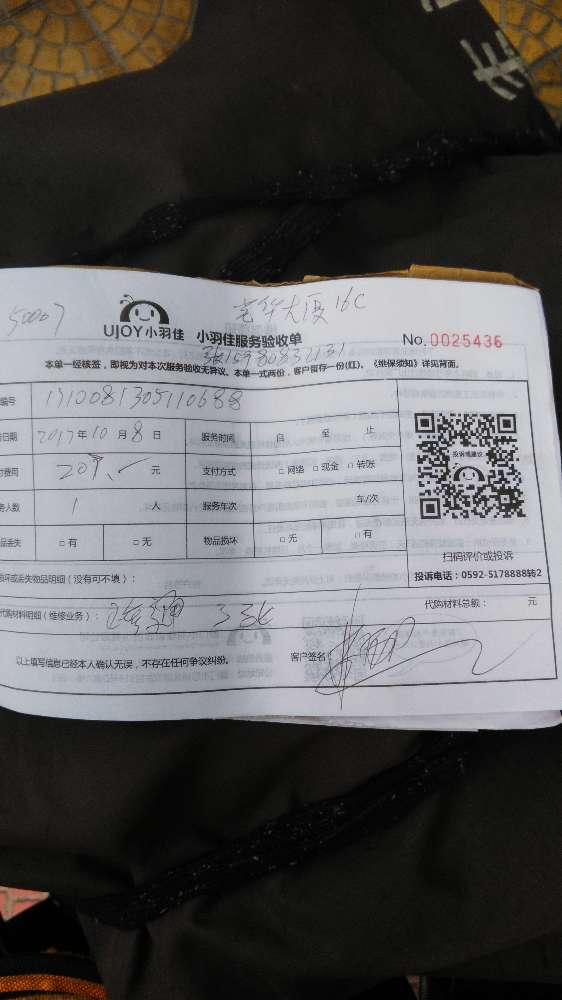 光华大厦16C
50007
UJOY小羽佳 小羽佳服务验收单 No.0025436
张15980832131
本单一经核签，即视为对本次服务验收无异议。本单一式两份，客户留存一份(红)。《维保须知》详见背面。
编号
日期 2017年10月8日 服务时间 自 至 止
费用 元 支付方式 □网络 □现金 □转账
投诉或建议
务人数 1 人 服务车次 车/次
品丢失 □有 □无 物品损坏 □无 □有
扫码评价或投诉
投诉电话：0592-5178888转2
损坏或丢失物品明细（没有可不填）：
代购材料明细（维修业务）： 代购材料总额： 元
以上填写信息已经本人确认无误，不存在任何争议纠纷。 客户签名：